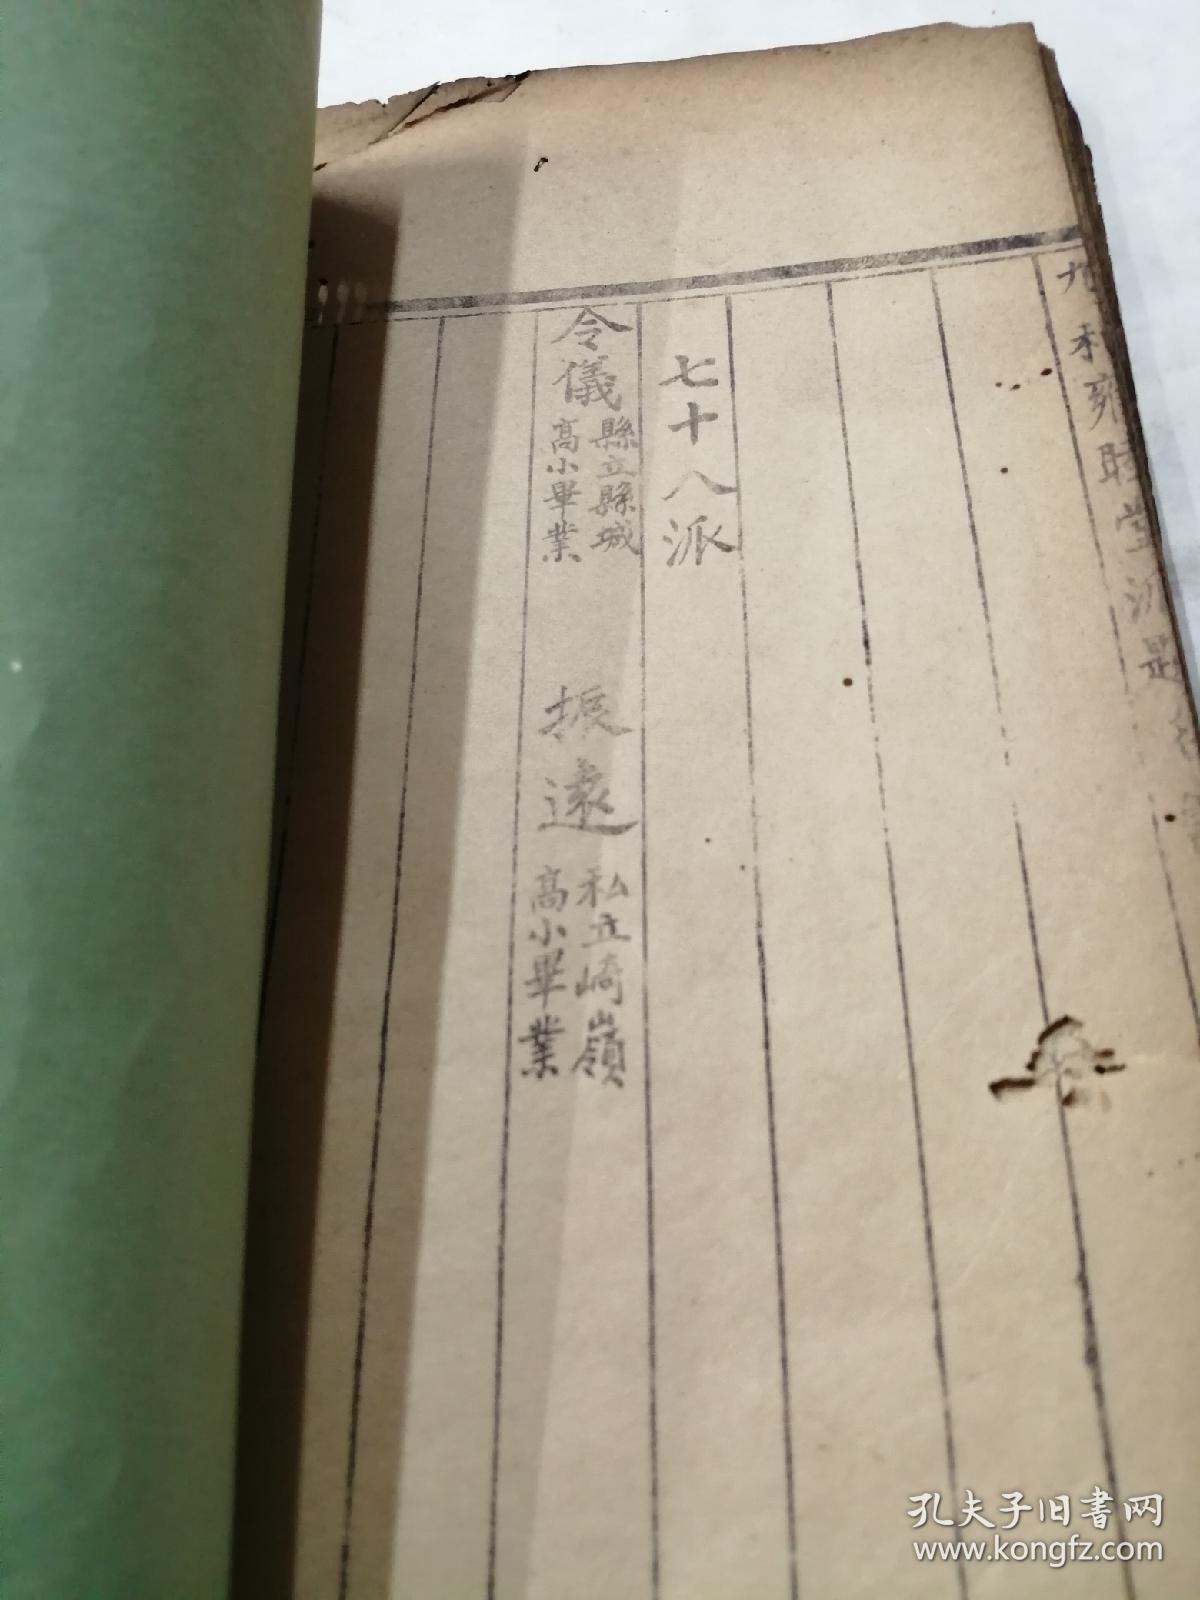 雍睦堂派
七十八派
令儀 縣立縣城
高小畢業
振遠 私立崎嶺
高小畢業
孔夫子旧书网
www.kongfz.com